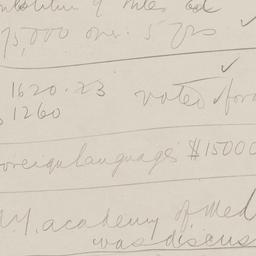 of
75,000 over 5 yrs ✓
1620.23 voted for
1260
Foreign Languages $15000
N.Y. academy of Med
was discus